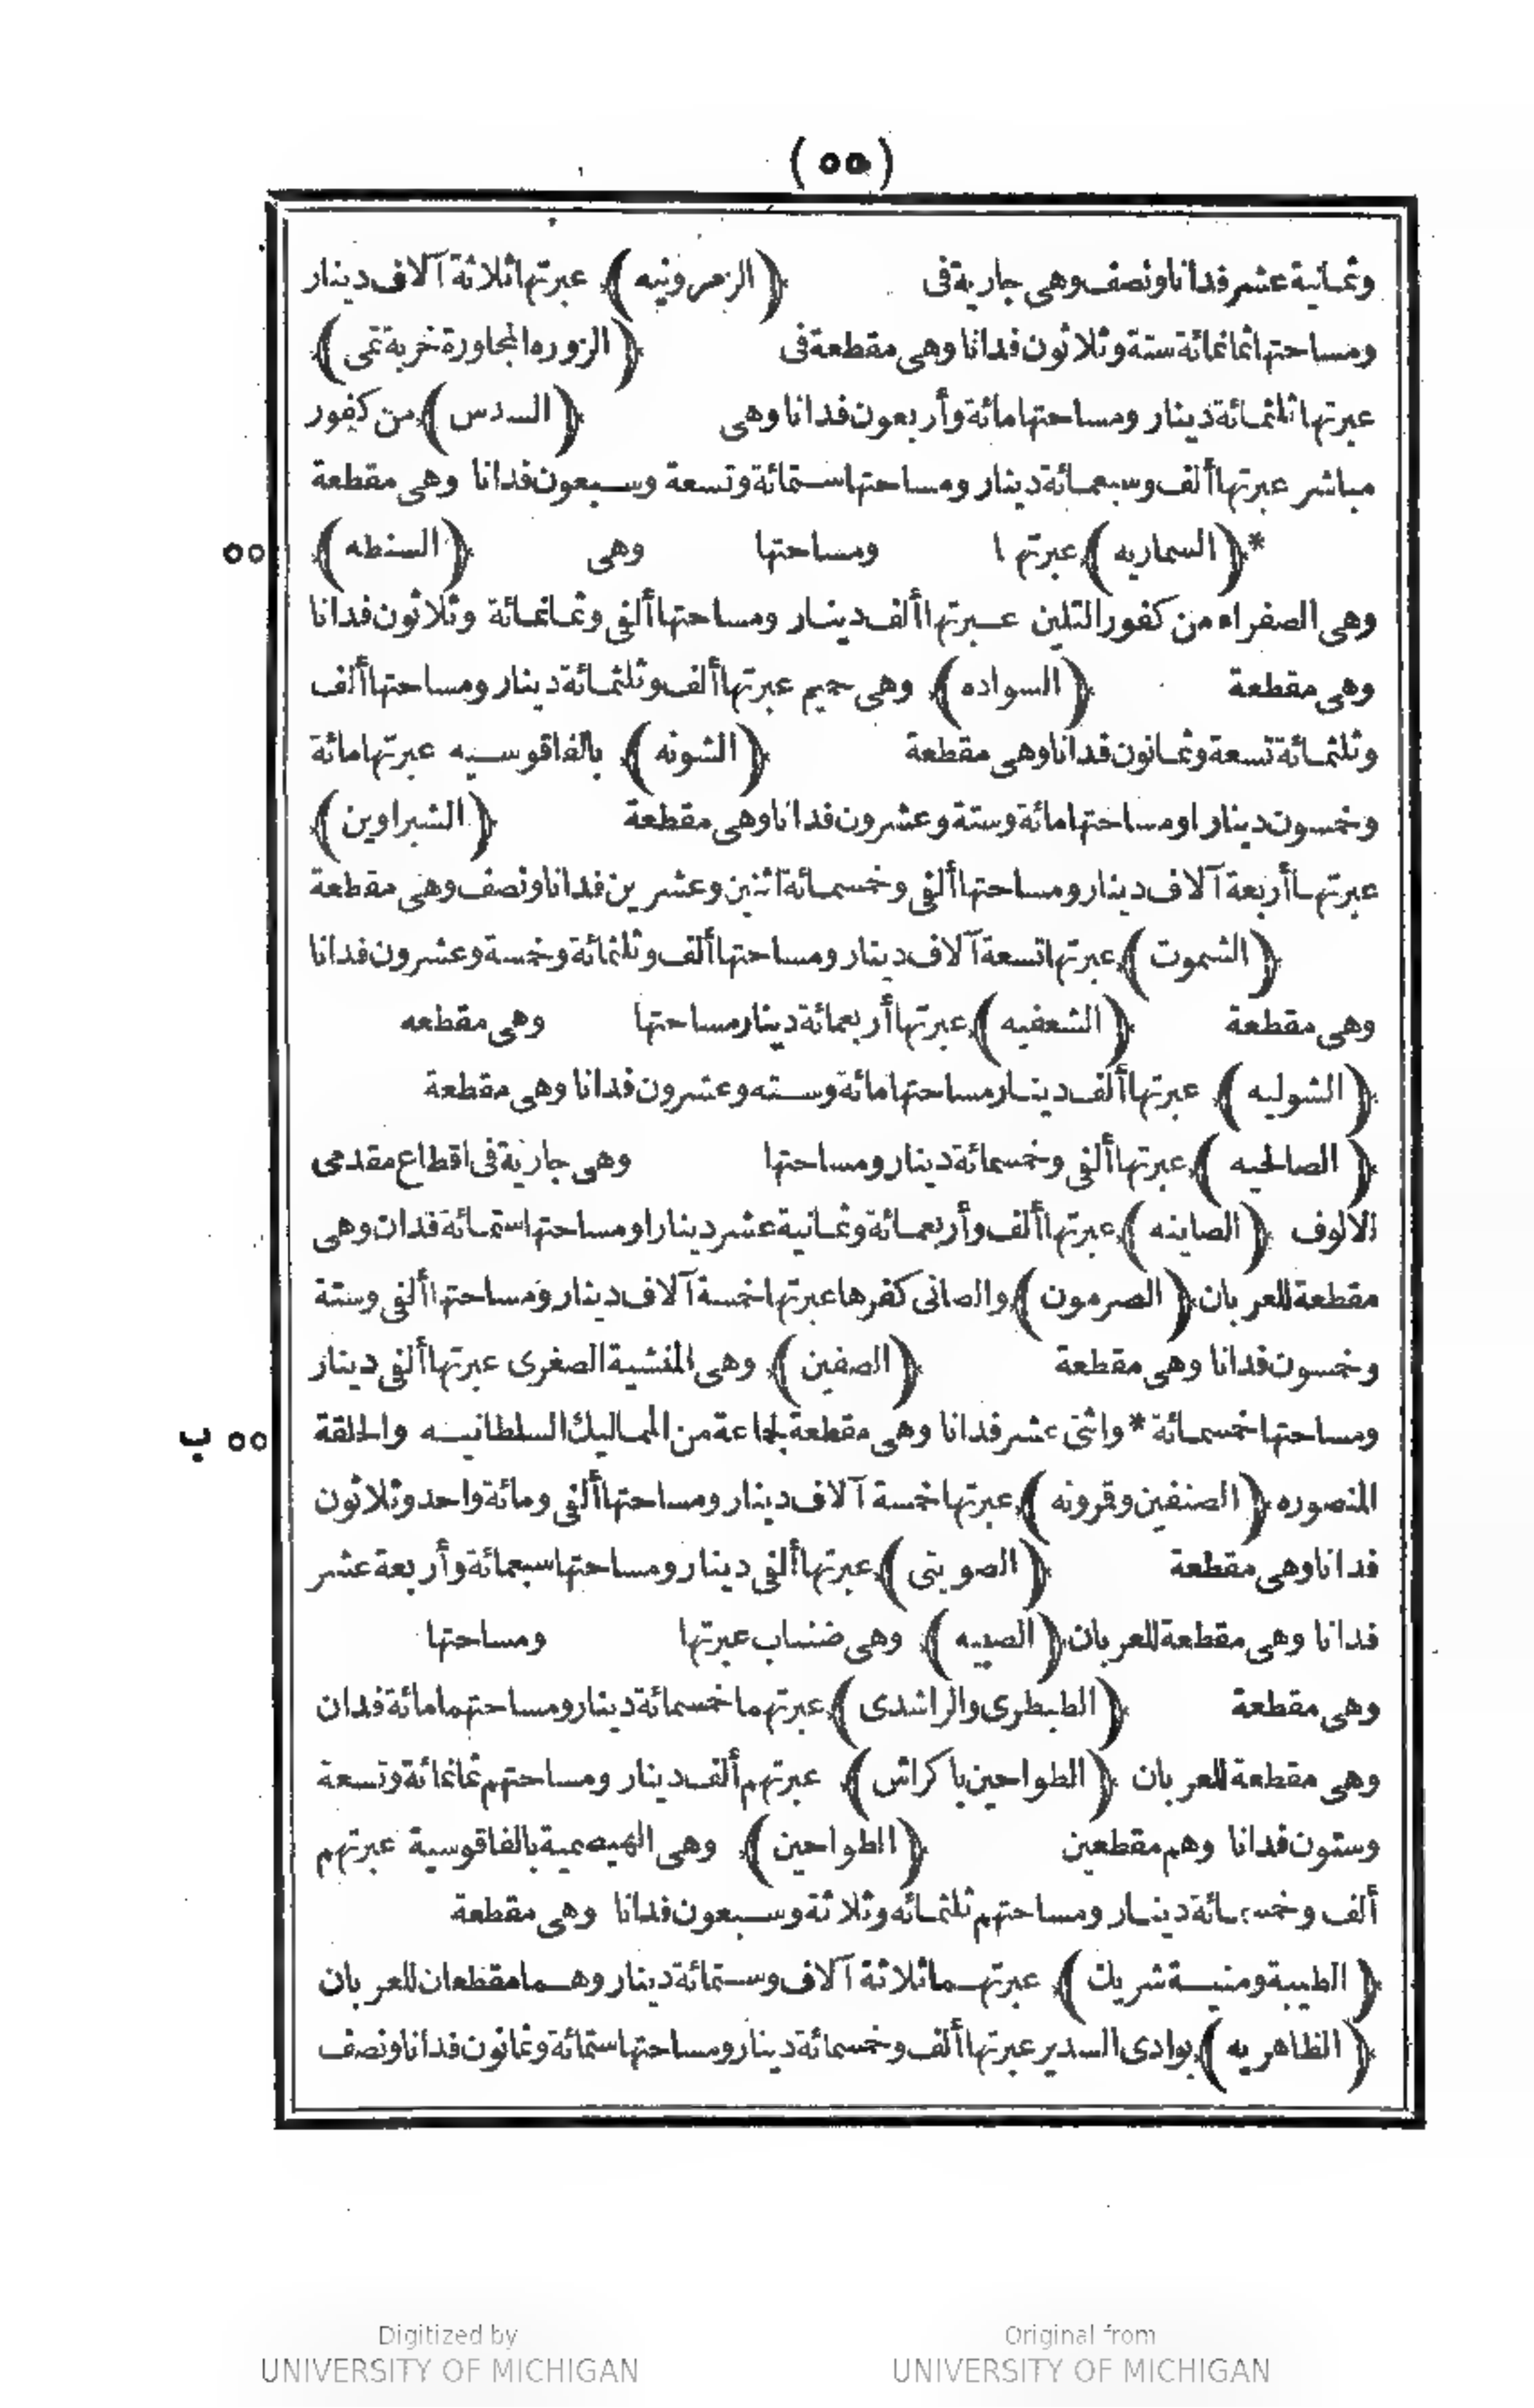 (٥٥)
وثمانية عشر فدانا ونصف وهى جارية فى (الزعرونيه) عبرتها ثلاثة آلاف دينار
ومساحتها ثمانمائة ستة وثلاثون فدانا وهى مقطعة فى (الزوره المجاورة خربة تمى)
عبرتها ثلثمائة دينار ومساحتها مائة وأربعون فدانا وهى (السدس) من كفور
مباشر عبرتها ألف وسبعمائة دينار ومساحتها ستمائة وتسعة وسبعون فدانا وهى مقطعة
*(السماريه) عبرتها ومساحتها وهى (السنطه)
٥٥
وهى الصفراء من كفور التلين عبرتها ألف دينار ومساحتها ألفى وثمانمائة وثلاثون فدانا
وهى مقطعة (السواده) وهى جيم عبرتها ألف وثلثمائة دينار ومساحتها ألف
وثلثمائة تسعة وثمانون فدانا وهى مقطعة (الشونه) بالفاقوسيه عبرتها مائة
وخمسون دينارا ومساحتها مائة وستة وعشرون فدانا وهى مقطعة (الشبراوين)
عبرتها أربعة آلاف دينار ومساحتها ألفى وخمسمائة اثنين وعشرين فدانا ونصف وهى مقطعة
(الشموت) عبرتها تسعة آلاف دينار ومساحتها ألف وثلثمائة وخمسة وعشرون فدانا
وهى مقطعة (الشعفيه) عبرتها أربعمائة دينار مساحتها وهى مقطعه
(الشوليه) عبرتها ألف دينار مساحتها مائة وسته وعشرون فدانا وهى مقطعة
(الصالحيه) عبرتها ألفى وخمسمائة دينار ومساحتها وهى جارية فى اقطاع مقدمى
الالوف (الصابنه) عبرتها ألف وأربعمائة وثمانية عشر دينارا ومساحتها ستمائة فدان وهى
مقطعة للعربان (الصرمون) والصانى كفرها عبرتها خمسة آلاف دينار ومساحتها ألفى وستة
وخمسون فدانا وهى مقطعة (الصفين) وهى المنشية الصغرى عبرتها ألفى دينار
ومساحتها خمسمائة * واثنى عشر فدانا وهى مقطعة لجماعة من المماليك السلطانيه والحلقة
٥٥ ب
المنصوره (الصنفين وقرونه) عبرتها خمسة آلاف دينار ومساحتها ألفى ومائة واحد وثلاثون
فدانا وهى مقطعة (الصوينى) عبرتها ألفى دينار ومساحتها سبعمائة وأربعة عشر
فدانا وهى مقطعة للعربان (الصبيه) وهى ضنساب عبرتها ومساحتها
وهى مقطعة (الطبطرى والراشدى) عبرتهما خمسمائة دينار ومساحتهما مائة فدان
وهى مقطعة للعربان (الطواحين باكراش) عبرتهم ألف دينار ومساحتهم ثمانمائة وتسعة
وستون فدانا وهم مقطعين (الطواحين) وهى الهيصمية بالفاقوسية عبرتهم
ألف وخمسمائة دينار ومساحتهم ثلثمائه وثلاثة وسبعون فدانا وهى مقطعة
(الطيبة ومنية شريك) عبرتهما ثلاثة آلاف وستمائة دينار وهما مقطعان للعربان
(الظاهريه) بوادى السدير عبرتها ألف وخمسمائة دينار ومساحتها ستمائة وثمانون فدانا ونصف
Digitized by
UNIVERSITY OF MICHIGAN
Original from
UNIVERSITY OF MICHIGAN